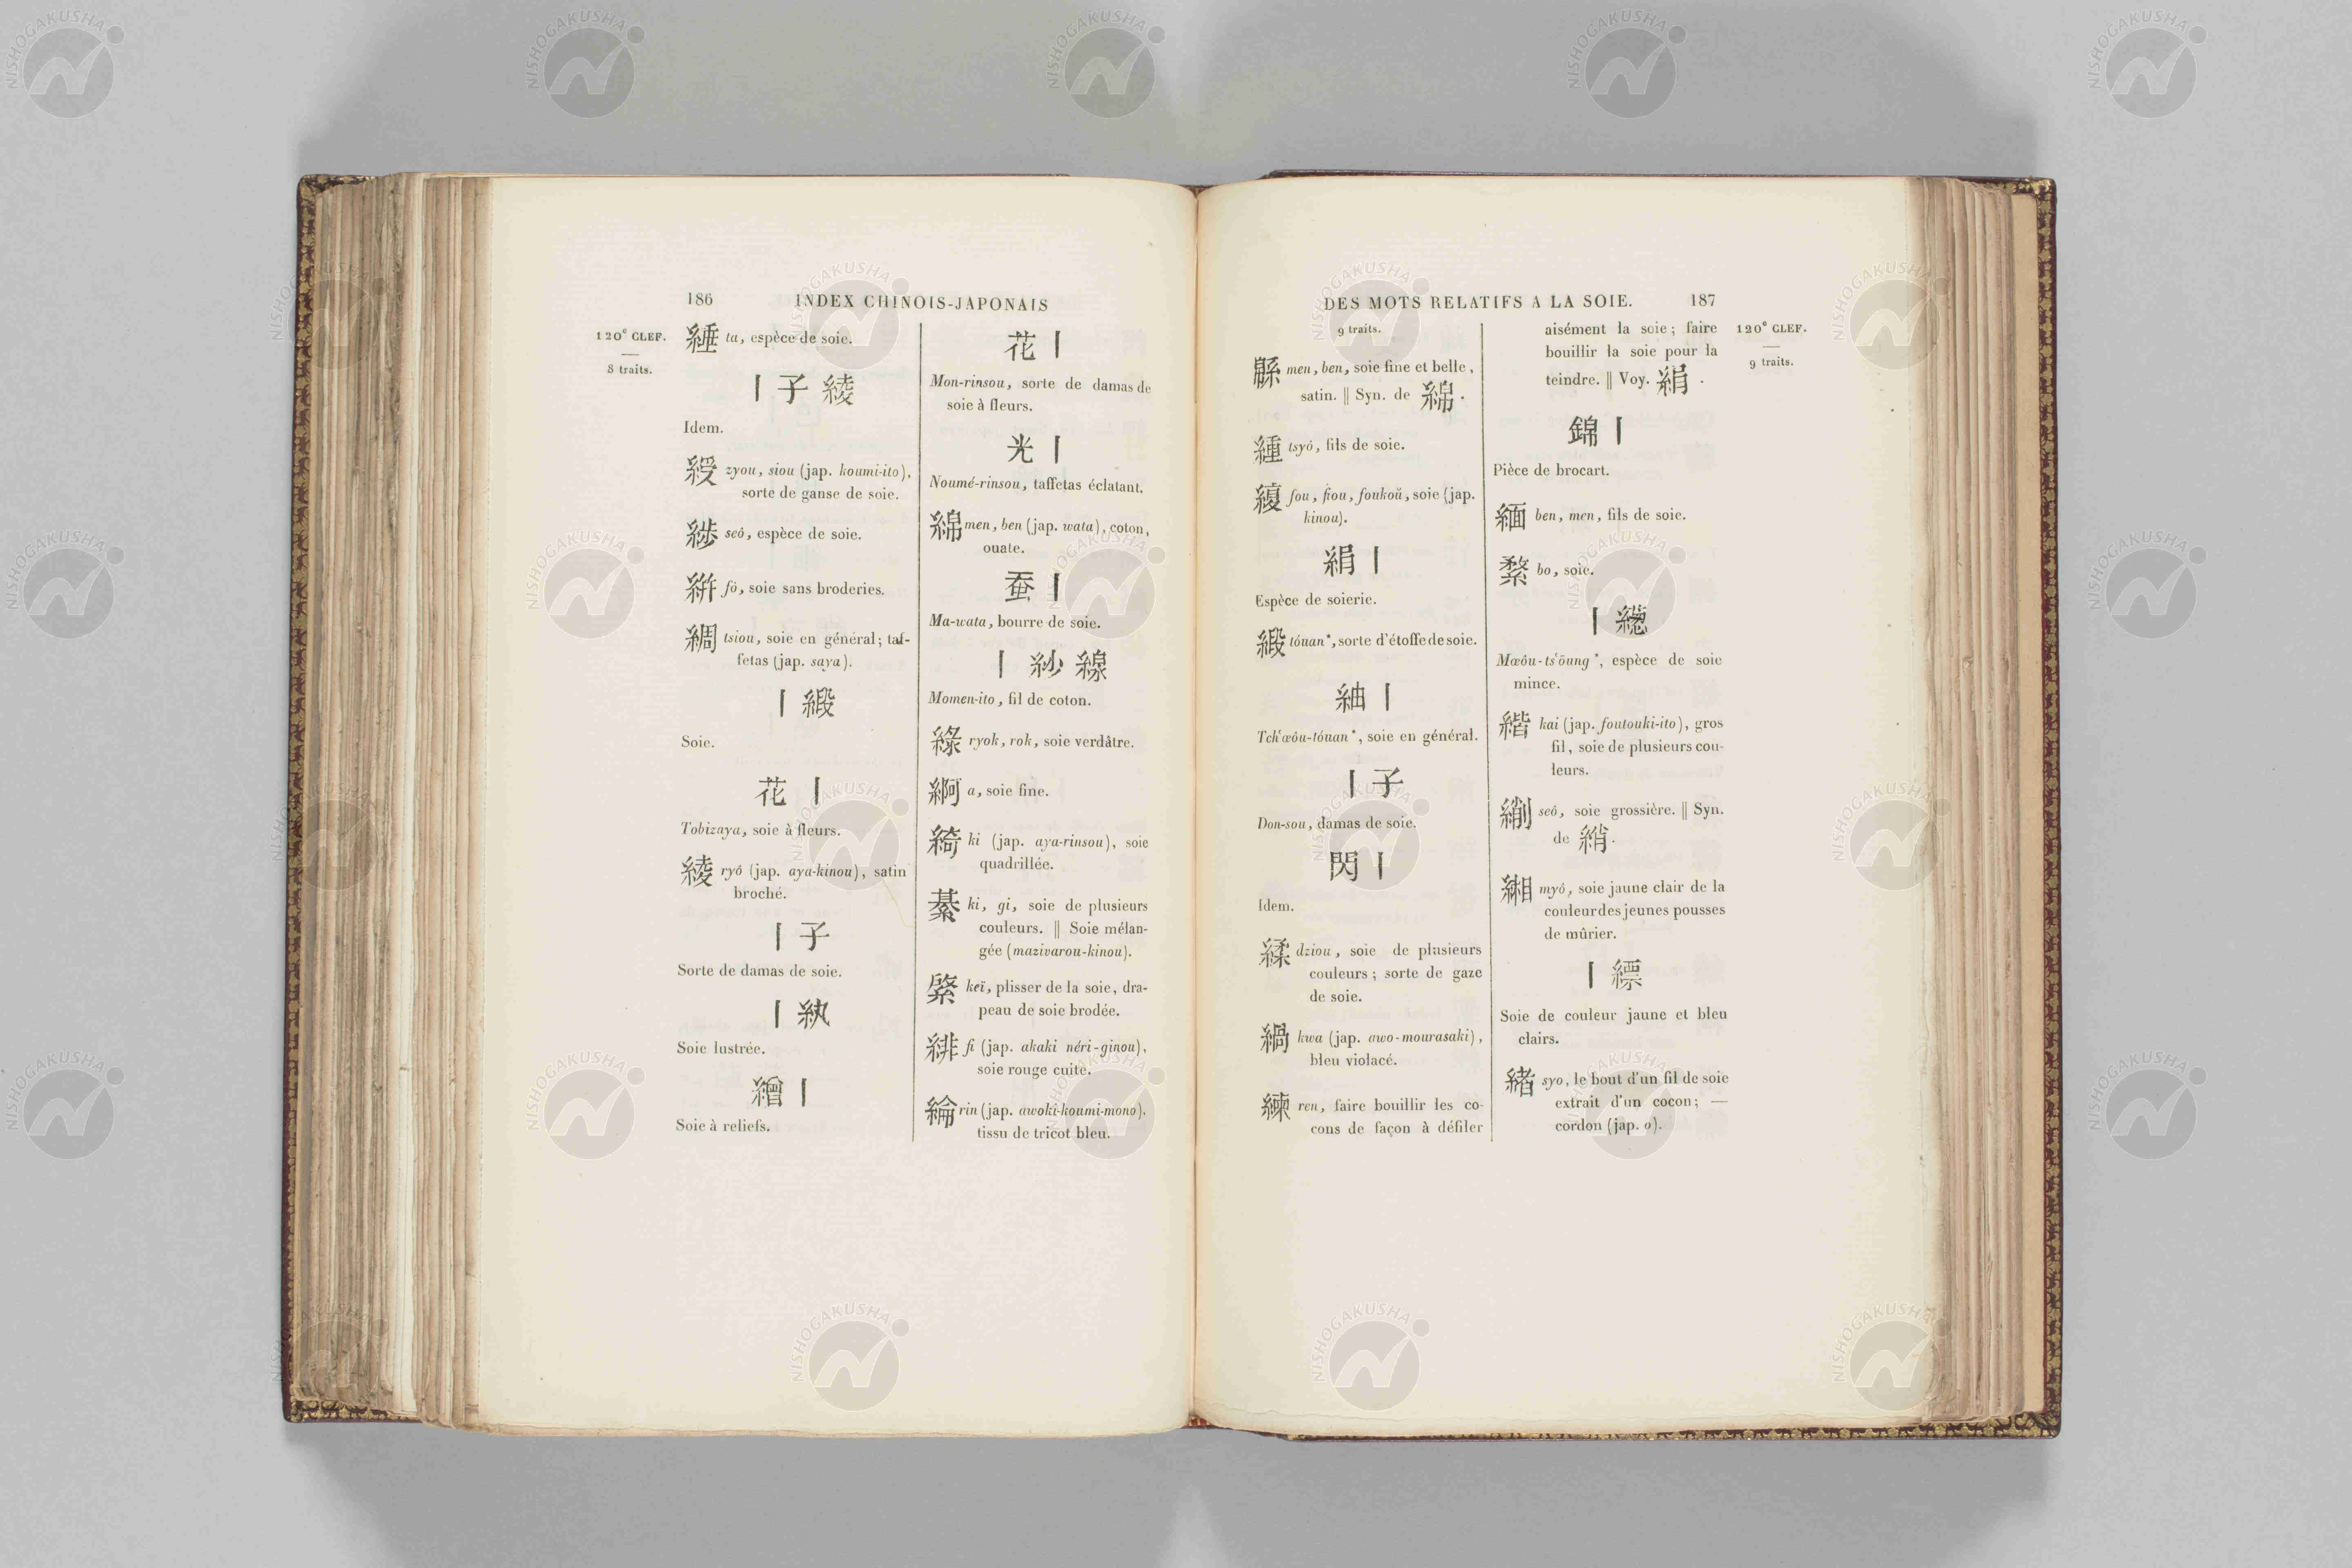 186 INDEX CHINOIS-JAPONAIS
120e CLEF.
8 traits.
綞 ta, espèce de soie.
｜子綾
Idem.
綬 zyou, siou (jap. koumi-ito),
sorte de ganse de soie.
seô, espèce de soie.
絣 fò, soie sans broderies.
綢 tsiou, soie en général; taf-
fetas (jap. saya).
｜緞
Soie.
花｜
Tobizaya, soie à fleurs.
綾 ryô (jap. aya-kinou), satin
broché.
｜子
Sorte de damas de soie.
｜紈
Soie lustrée.
繒｜
Soie à reliefs.
花｜
Mon-rinsou, sorte de damas de
soie à fleurs.
光｜
Noumé-rinsou, taffetas éclatant.
綿 men, ben (jap. wata), coton,
ouate.
蚕｜
Ma-wata, bourre de soie.
｜紗線
Momen-ito, fil de coton.
綠 ryok, rok, soie verdâtre.
綱 a, soie fine.
綺 ki (jap. aya-rinsou), soie
quadrillée.
綦 ki, gi, soie de plusieurs
couleurs. ‖ Soie mélan-
gée (mazivarou-kinou).
綮 keï, plisser de la soie, dra-
peau de soie brodée.
緋 fi (jap. akaki néri-ginou),
soie rouge cuite.
綸 rin (jap. awoki-koumi-mono),
tissu de tricot bleu.
DES MOTS RELATIFS A LA SOIE. 187
9 traits.
緜 men, ben, soie fine et belle,
satin. ‖ Syn. de 綿.
緟 tsyô, fils de soie.
fou, fiou, foukoŭ, soie (jap.
kinou).
絹｜
Espèce de soierie.
緞 tóuan*, sorte d'étoffe de soie.
紬｜
Tch'œôu-tóuan*, soie en général.
｜子
Don-sou, damas de soie.
閃｜
Idem.
緣 dziou, soie de plusieurs
couleurs; sorte de gaze
de soie.
緺 kwa (jap. awo-mourasaki),
bleu violacé.
練 ren, faire bouillir les co-
cons de façon à défiler
120e CLEF.
9 traits.
aisément la soie; faire
bouillir la soie pour la
teindre. ‖ Voy. 絹.
錦｜
Pièce de brocart.
緬 ben, men, fils de soie.
bo, soie.
｜繱
Mœôu-ts'ōung*, espèce de soie
mince.
kai (jap. foutouki-ito), gros
fil, soie de plusieurs cou-
leurs.
seô, soie grossière. ‖ Syn.
de 綃.
緗 myô, soie jaune clair de la
couleur des jeunes pousses
de mûrier.
｜縹
Soie de couleur jaune et bleu
clairs.
緒 syo, le bout d'un fil de soie
extrait d'un cocon; —
cordon (jap. o).
NISHOGAKUSHA